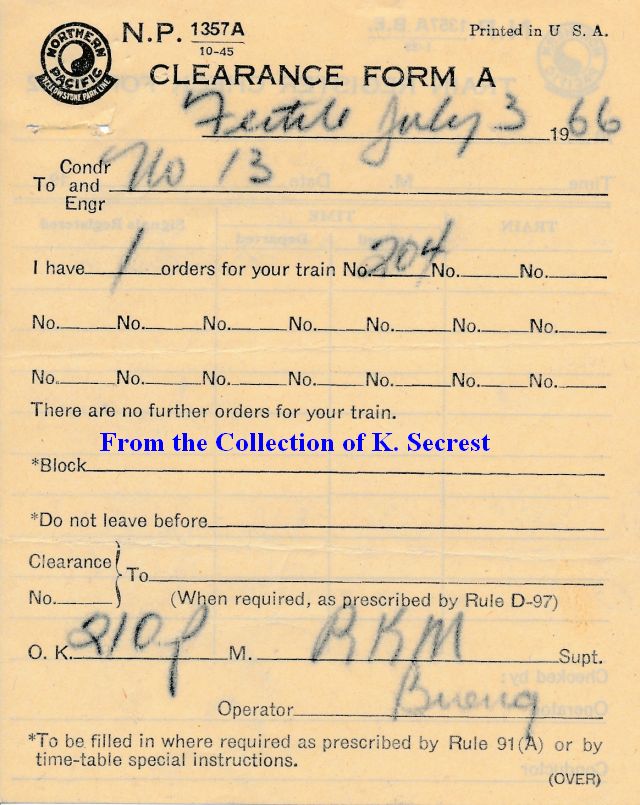 NORTHERN PACIFIC
YELLOWSTONE PARK LINE
N.P. 1357A
10-45
Printed in U. S. A.
CLEARANCE FORM A
July 3 1966
Condr
To and No 13
Engr
I have 1 orders for your train No. 204 No. No.
No. No. No. No. No. No. No.
No. No. No. No. No. No. No.
There are no further orders for your train.
From the Collection of K. Secrest
*Block
*Do not leave before
Clearance
To
No. (When required, as prescribed by Rule D-97)
O. K. 210 P M. RKM Supt.
Operator
*To be filled in where required as prescribed by Rule 91(A) or by
time-table special instructions.
(OVER)